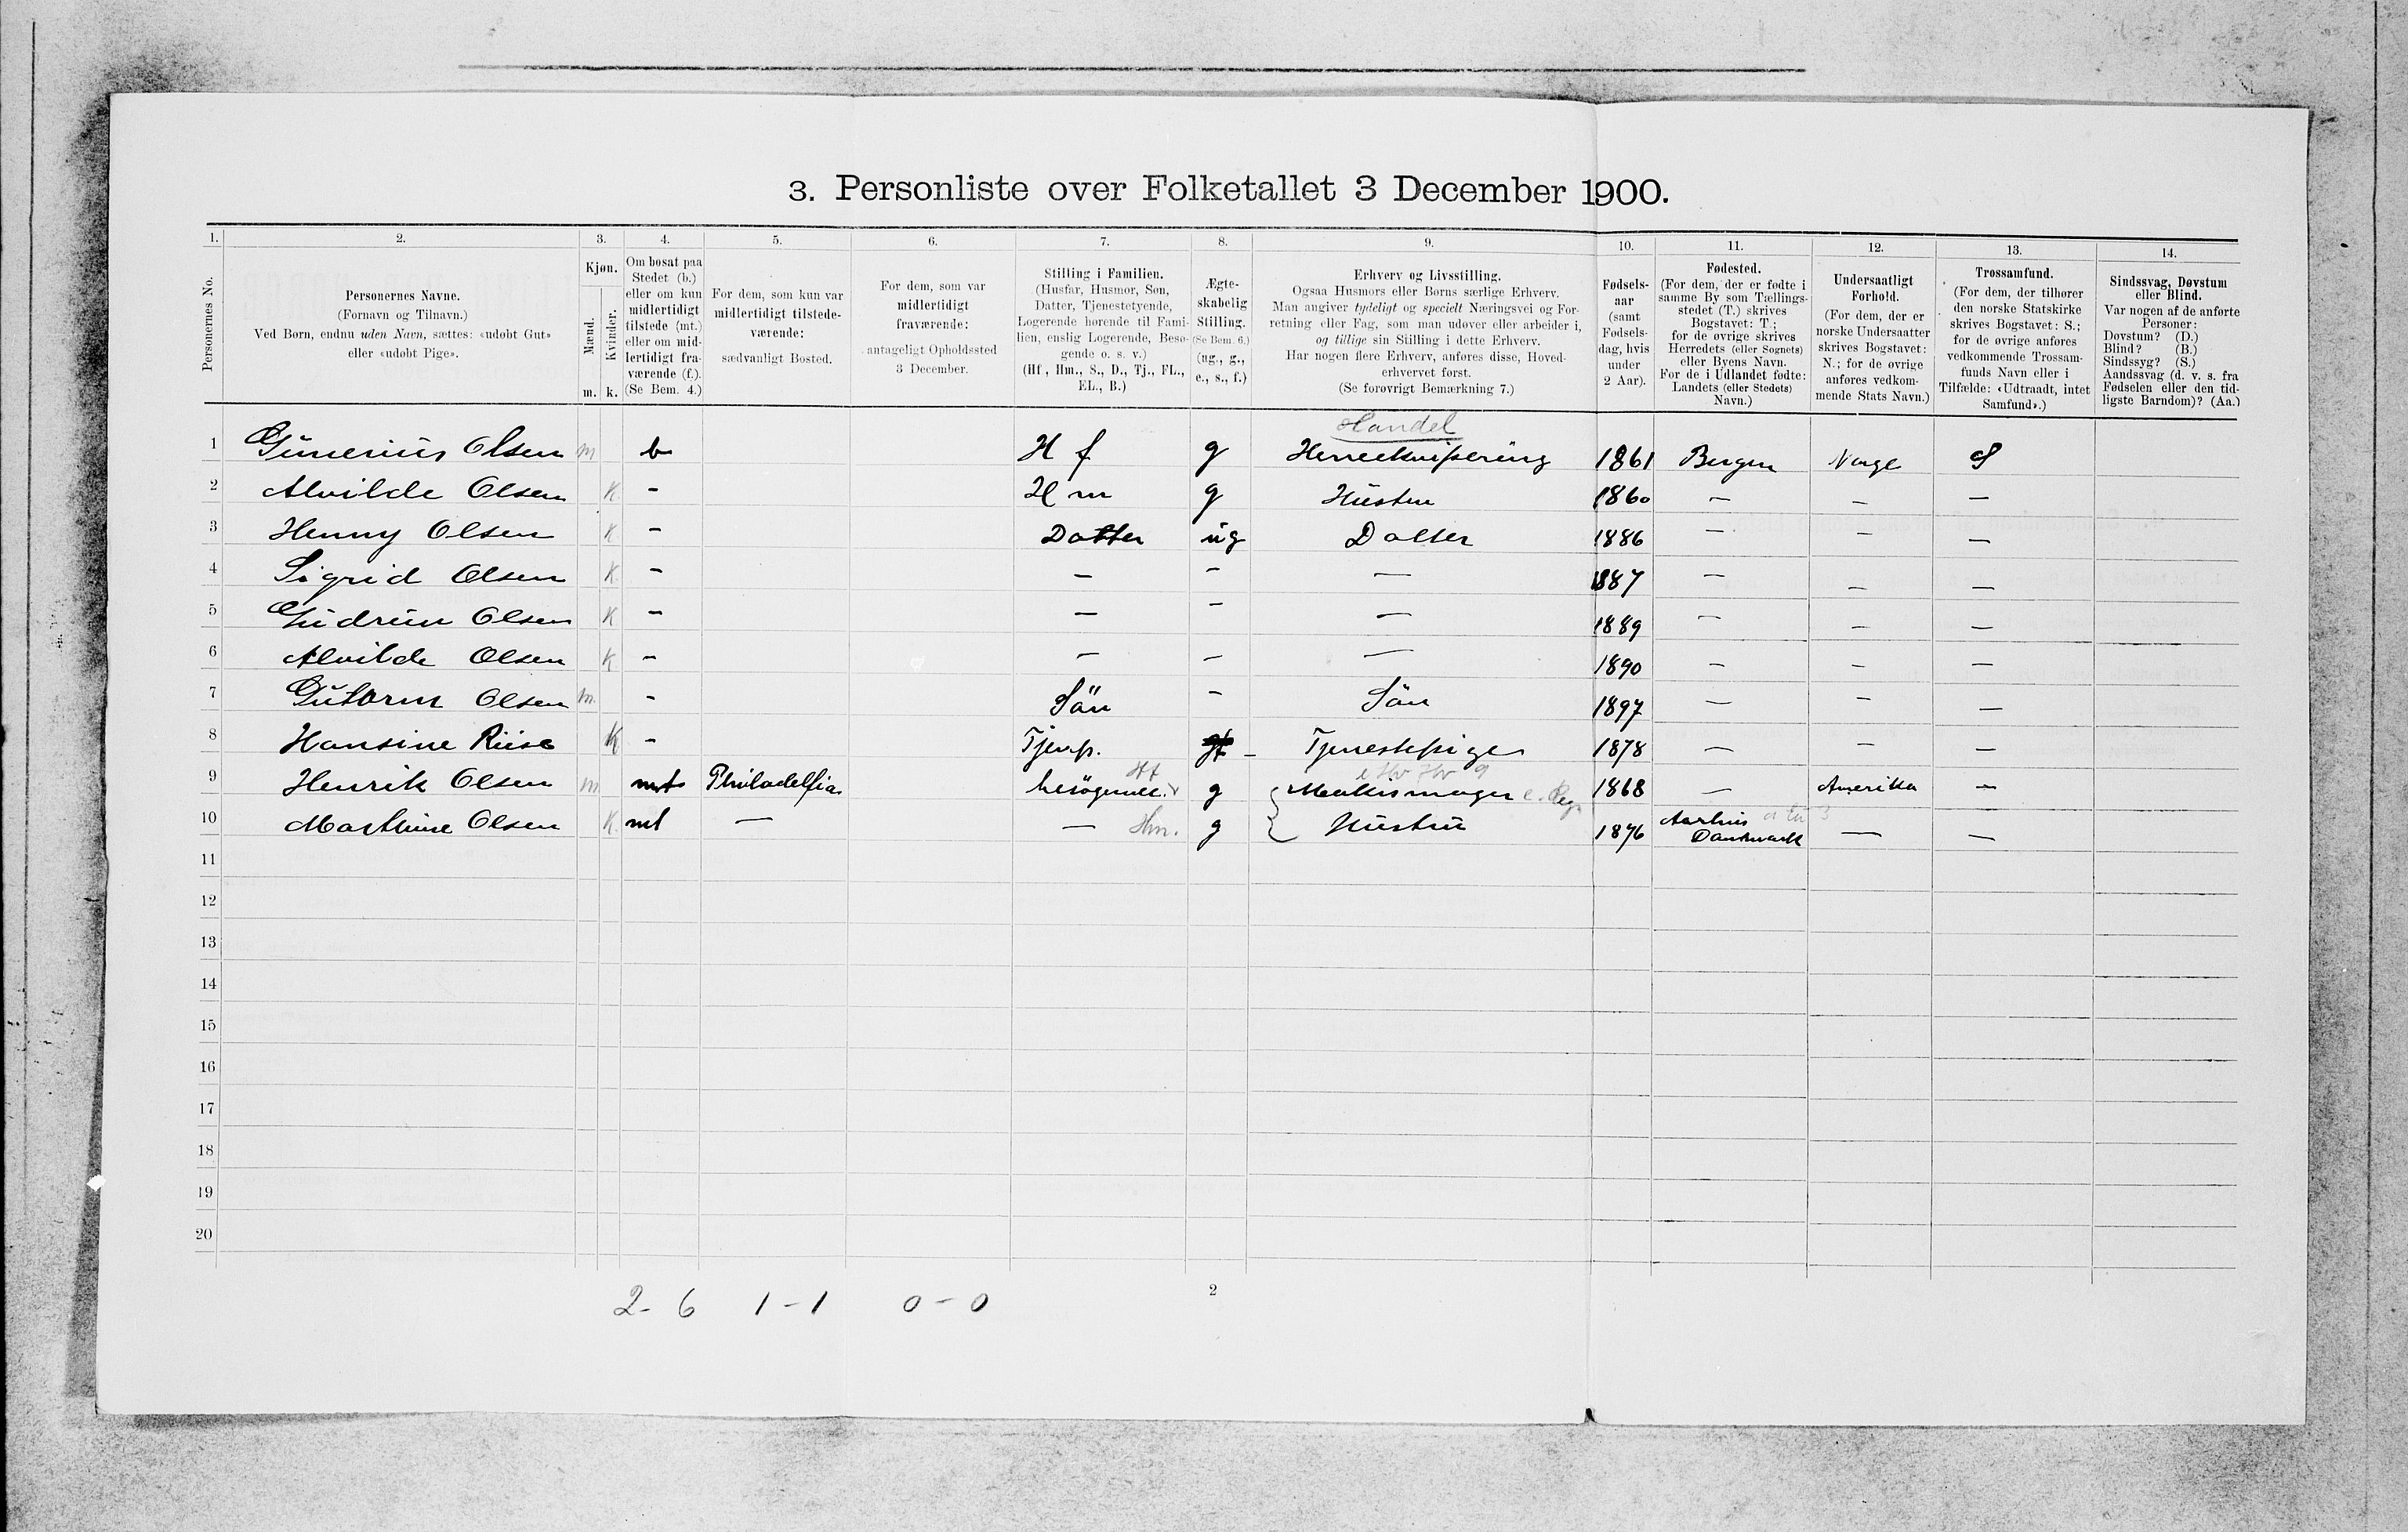 3. Personliste over Folketallet 3 December 1900.
1. 2. 3. 4. 5. 6. 7. 8. 9. 10. 11. 12. 13. 14.
Personernes No.
Personernes Navne.
(Fornavn og Tilnavn.)
Ved Børn, endnu uden Navn, sættes: «udøbt Gut»
eller «udøbt Pige».
Kjøn.
Mænd.
Kvinder.
m. k.
Om bosat paa
Stedet (b.)
eller om kun
midlertidigt
tilstede (mt.)
eller om mid-
lertidigt fra-
værende (f.).
(Se Bem. 4.)
For dem, som kun var
midlertidigt tilstede-
værende:
sædvanligt Bosted.
For dem, som var
midlertidigt
fraværende:
antageligt Opholdssted
3 December.
Stilling i Familien.
(Husfar, Husmor, Søn,
Datter, Tjenestetyende,
Logerende hørende til Fami-
lien, enslig Logerende, Besø-
gende o. s. v.)
(Hf, Hm., S., D., Tj., FL.,
EL., B.)
Ægte-
skabelig
Stilling.
(Se Bem. 6.)
(ug., g.,
e., s., f.)
Erhverv og Livsstilling.
Ogsaa Husmors eller Børns særlige Erhverv.
Man angiver tydeligt og specielt Næringsvei og For-
retning eller Fag, som man udøver eller arbeider i,
og tillige sin Stilling i dette Erhverv.
Har nogen flere Erhverv, anføres disse, Hoved-
erhvervet først.
(Se forøvrigt Bemærkning 7.)
Fødsels-
aar
(samt
Fødsels-
dag, hvis
under
2 Aar).
Fødested.
(For dem, der er fødte i
samme By som Tællings-
stedet (T.) skrives
Bogstavet: T.;
for de øvrige skrives
Herredets (eller Sognets)
eller Byens Navn.
For de i Udlandet fødte:
Landets (eller Stedets)
Navn.)
Undersaatligt
Forhold.
(For dem, der er
norske Undersaatter
skrives Bogstavet:
N.; for de øvrige
anføres vedkom-
mende Stats Navn.)
Trossamfund.
(For dem, der tilhører
den norske Statskirke
skrives Bogstavet: S.;
for de øvrige anføres
vedkommende Trossam-
funds Navn eller i
Tilfælde: «Udtraadt, intet
Samfund».)
Sindssvag, Døvstum
eller Blind.
Var nogen af de anførte
Personer:
Døvstum? (D.)
Blind? (B.)
Sindssyg? (S.)
Aandssvag (d. v. s. fra
Fødselen eller den tid-
ligste Barndom)? (Aa.)
Handel
1 Gunerius Olsen m b H f g Herreekvipering 1861 Bergen Norge S
2 Alvilde Olsen K. - H m g Hustru 1860 - - -
3 Henny Olsen K - Datter ug Datter 1886 - - -
4 Sigrid Olsen K. - - - - 1887 - - -
5 Gudrun Olsen K - - - - 1889 - - -
6 Alvilde Olsen K. - - - - 1890 - - -
7 Guttorm Olsen m. - Sön - Sön 1897 - - -
8 Hansine Riise K - Tjenp. - Tjenestepige 1878 - - -
9 Henrik Olsen m mt Philadelfia besøgende Hf g 1868 - Amerika -
10 Marthine Olsen K. mt - - Hm. g Hustru 1876 Aarhus Danmark - -
11
12
13
14
15
16
17
18
19
20
2
2-6 1-1 0-0